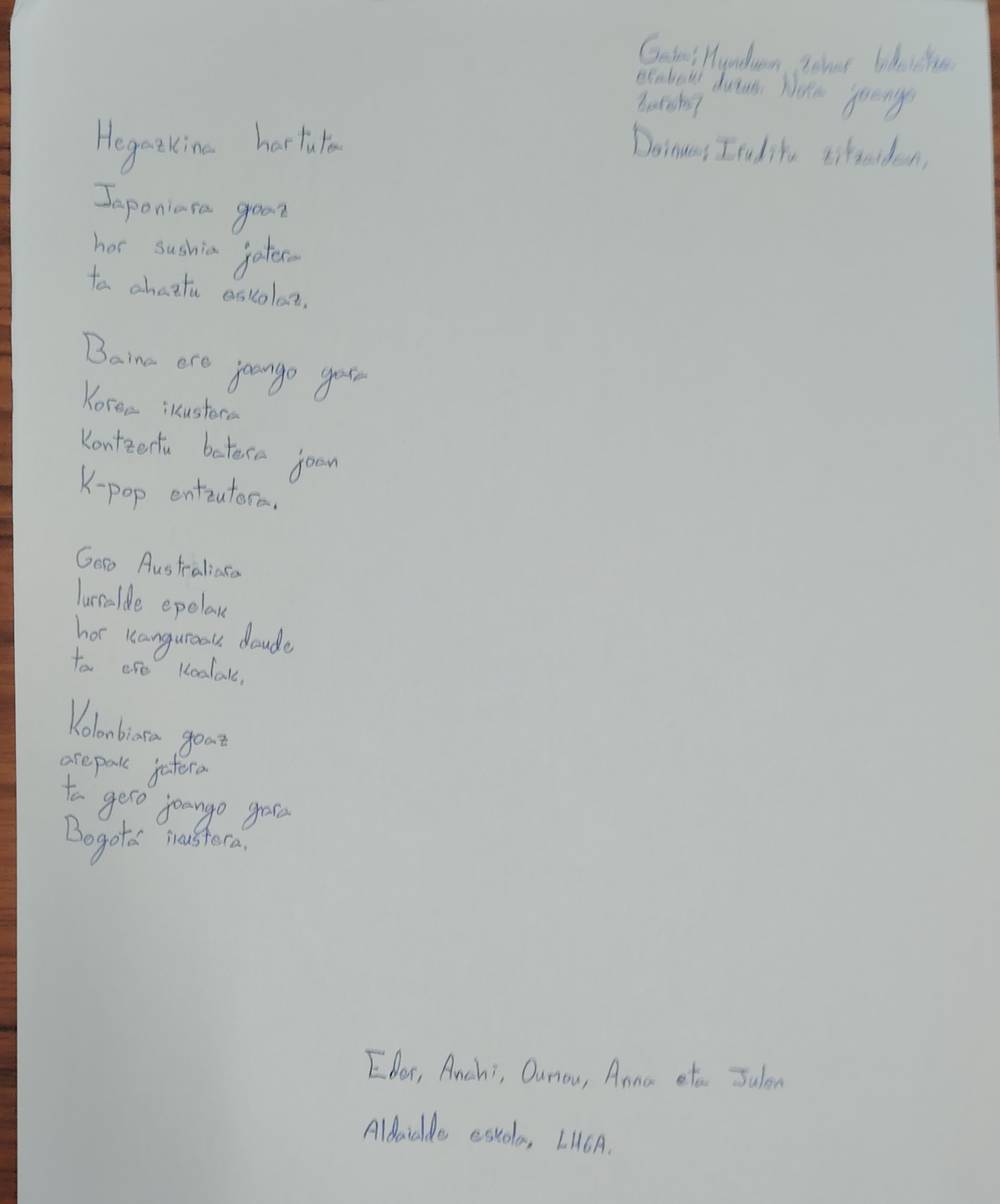 Gaia: Munduan zehar bidaiatzea
erabaki duzue. Nora joango
zarete?
Doinua: Iruditu zitzaidan,
Hegazkina hartuta
Japoniara goaz
hor sushia jatera
ta ahaztu eskolaz.
Baina ere joango gara
Korea ikustera
Kontzertu batera joan
K-pop entzutera.
Gero Australiara
lurralde epelak
hor kanguroak daude
ta ere koalak.
Kolonbiara goaz
arepak jatera
ta gero joango gara
Bogotá ikustera.
Eder, Anahi, Oumou, Anna eta Julen
Aldaialde eskola, LH6A.